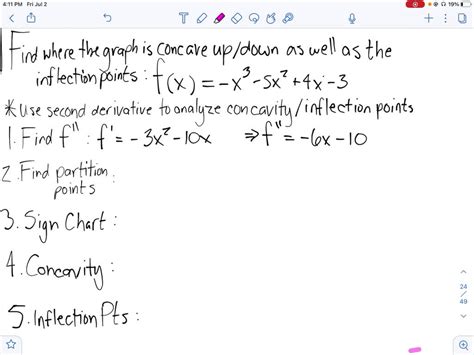 4:11 PM Fri Jul 2
19%
Find where the graph is concave up/down as well as the
inflection points: f(x) = -x³-5x²+4x-3
*Use second derivative to analyze concavity/inflection points
1. Find f'' : f' = -3x²-10x ⇒ f'' = -6x-10
2. Find partition
points :
3. Sign Chart :
4. Concavity :
5. Inflection Pts :
24
/
49